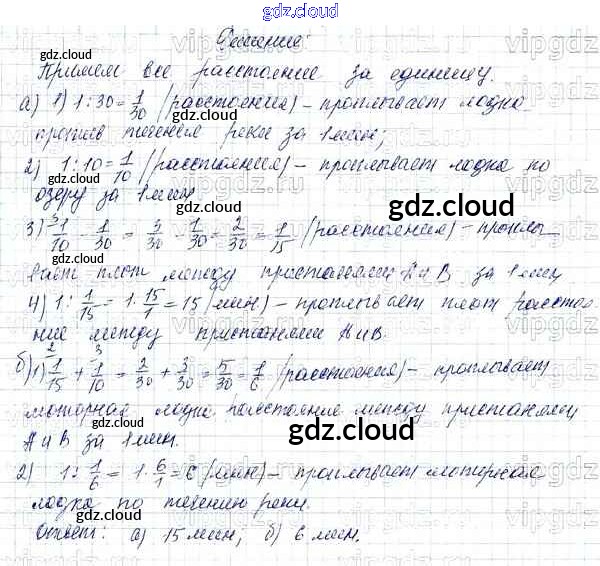 gdz.cloud
Решение:
Примем все расстояние за единицу.
а) 1) 1:30 = 1/30 (расстояния) – проплывает лодка
против течения реки за 1 мин;
2) 1:10 = 1/10 (расстояния) – проплывает лодка по
озеру за 1 мин
3) 1/10 - 1/30 = 3/30 - 1/30 = 2/30 = 1/15 (расстояния) – проплы-
вает плот между пристанями А и В за 1 мин
4) 1: 1/15 = 1 · 15/1 = 15 (мин) – проплывает плот расстоя-
ние между пристанями А и В.
б) 1) 1/15 + 1/10 = 2/30 + 3/30 = 5/30 = 1/6 (расстояния) – проплывает
моторная лодка расстояние между пристанями
А и В за 1 мин.
2) 1: 1/6 = 1 · 6/1 = 6 (мин) – проплывает моторная
лодка по течению реки.
Ответ: а) 15 мин; б) 6 мин.
gdz.cloud
gdz.cloud
gdz.cloud
gdz.cloud
gdz.cloud
gdz.cloud
gdz.cloud
gdz.cloud